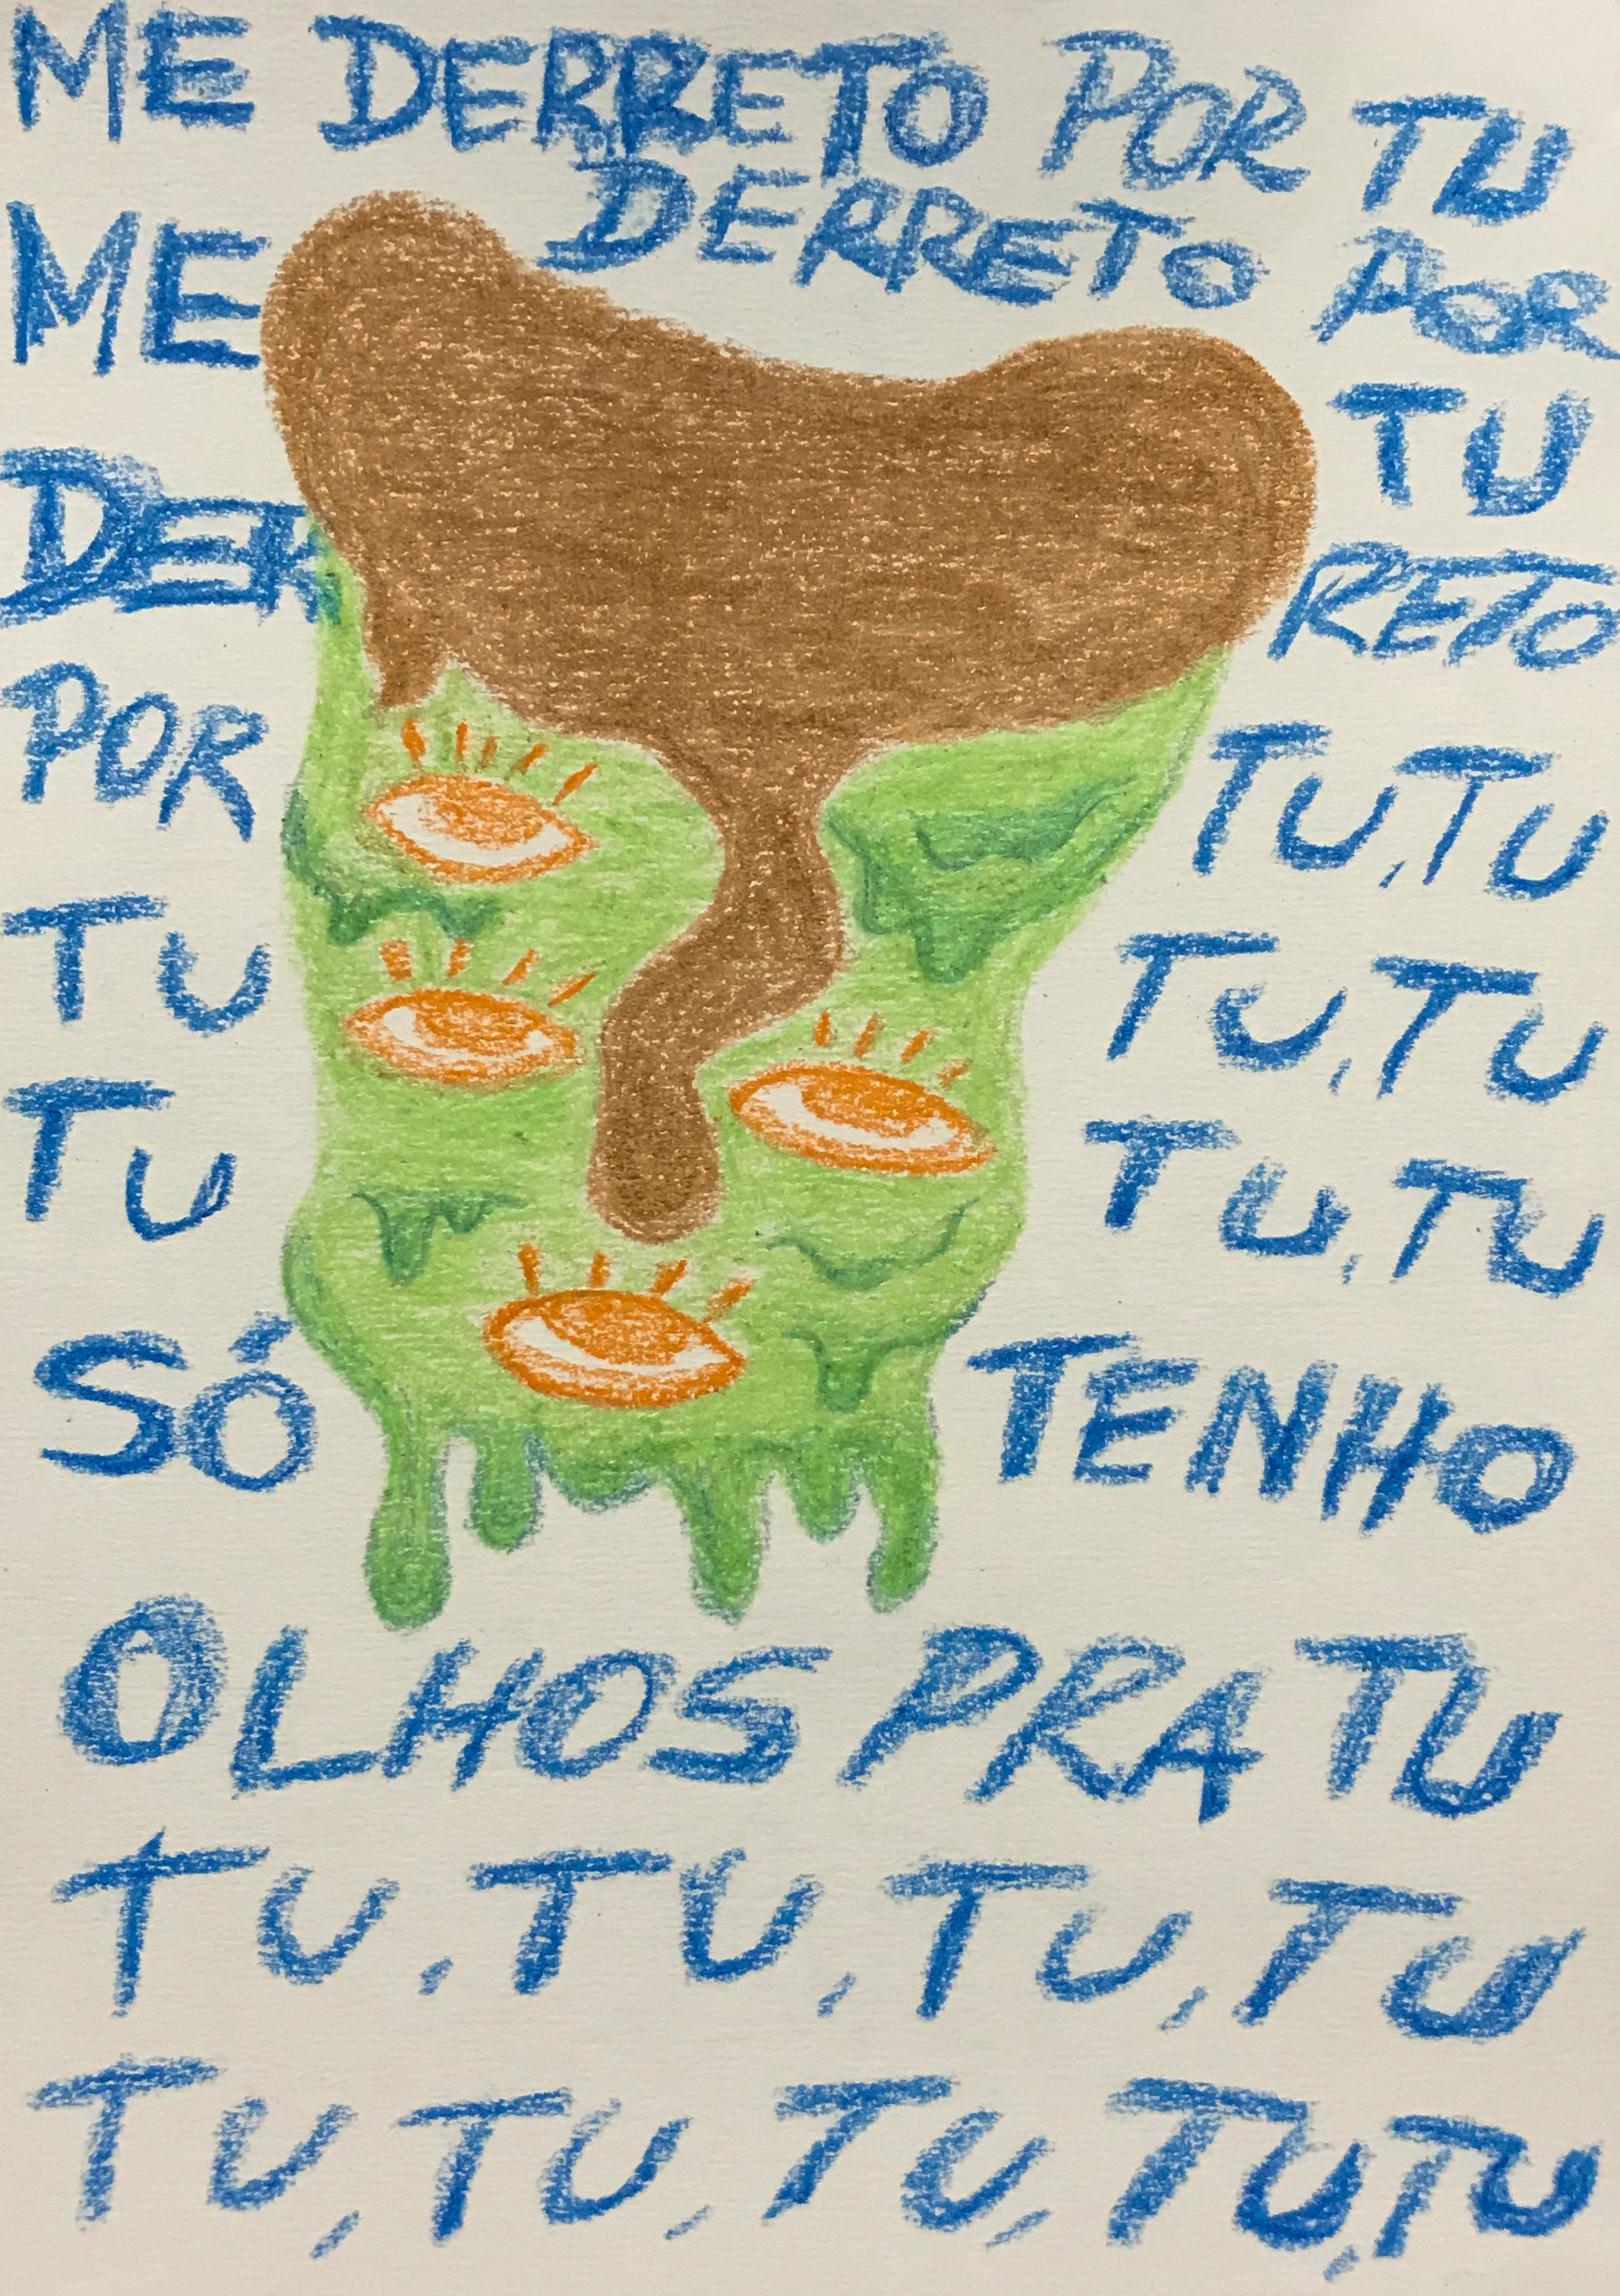 ME DERRETO POR TU
ME DERRETO POR
TU
DER RETO
POR TU, TU
TU TU, TU
TU TU, TU
SÓ TENHO
OLHOS PRA TU
TU, TU, TU, TU
TU, TU, TU, TU, TU